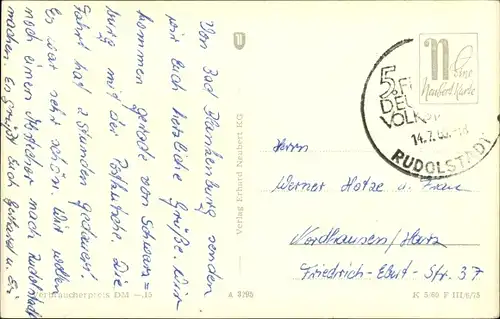 Von Bad Blankenburg senden
wir Euch herzliche Grüße. Wir
kommen gerade von Schwarz=
burg mit der Postkutsche. Die
Fahrt hat 2 Stunden gedauert.
Es war sehr schön. Wir wollen
noch einen Abstecher nach Rudolstadt
machen. Es grüßt Euch Gerhard u.
Verlag Erhard Neubert KG
Eine
Neubert Karte
5. 
DEU
VOLKS
14.7.
RUDOLSTADT
Herrn
Werner Hotze u. Frau
Nordhausen/Harz
Friedrich-Ebert-Str. 37
Verbraucherpreis DM -.15
A 3295
K 5/60 F III/6/15